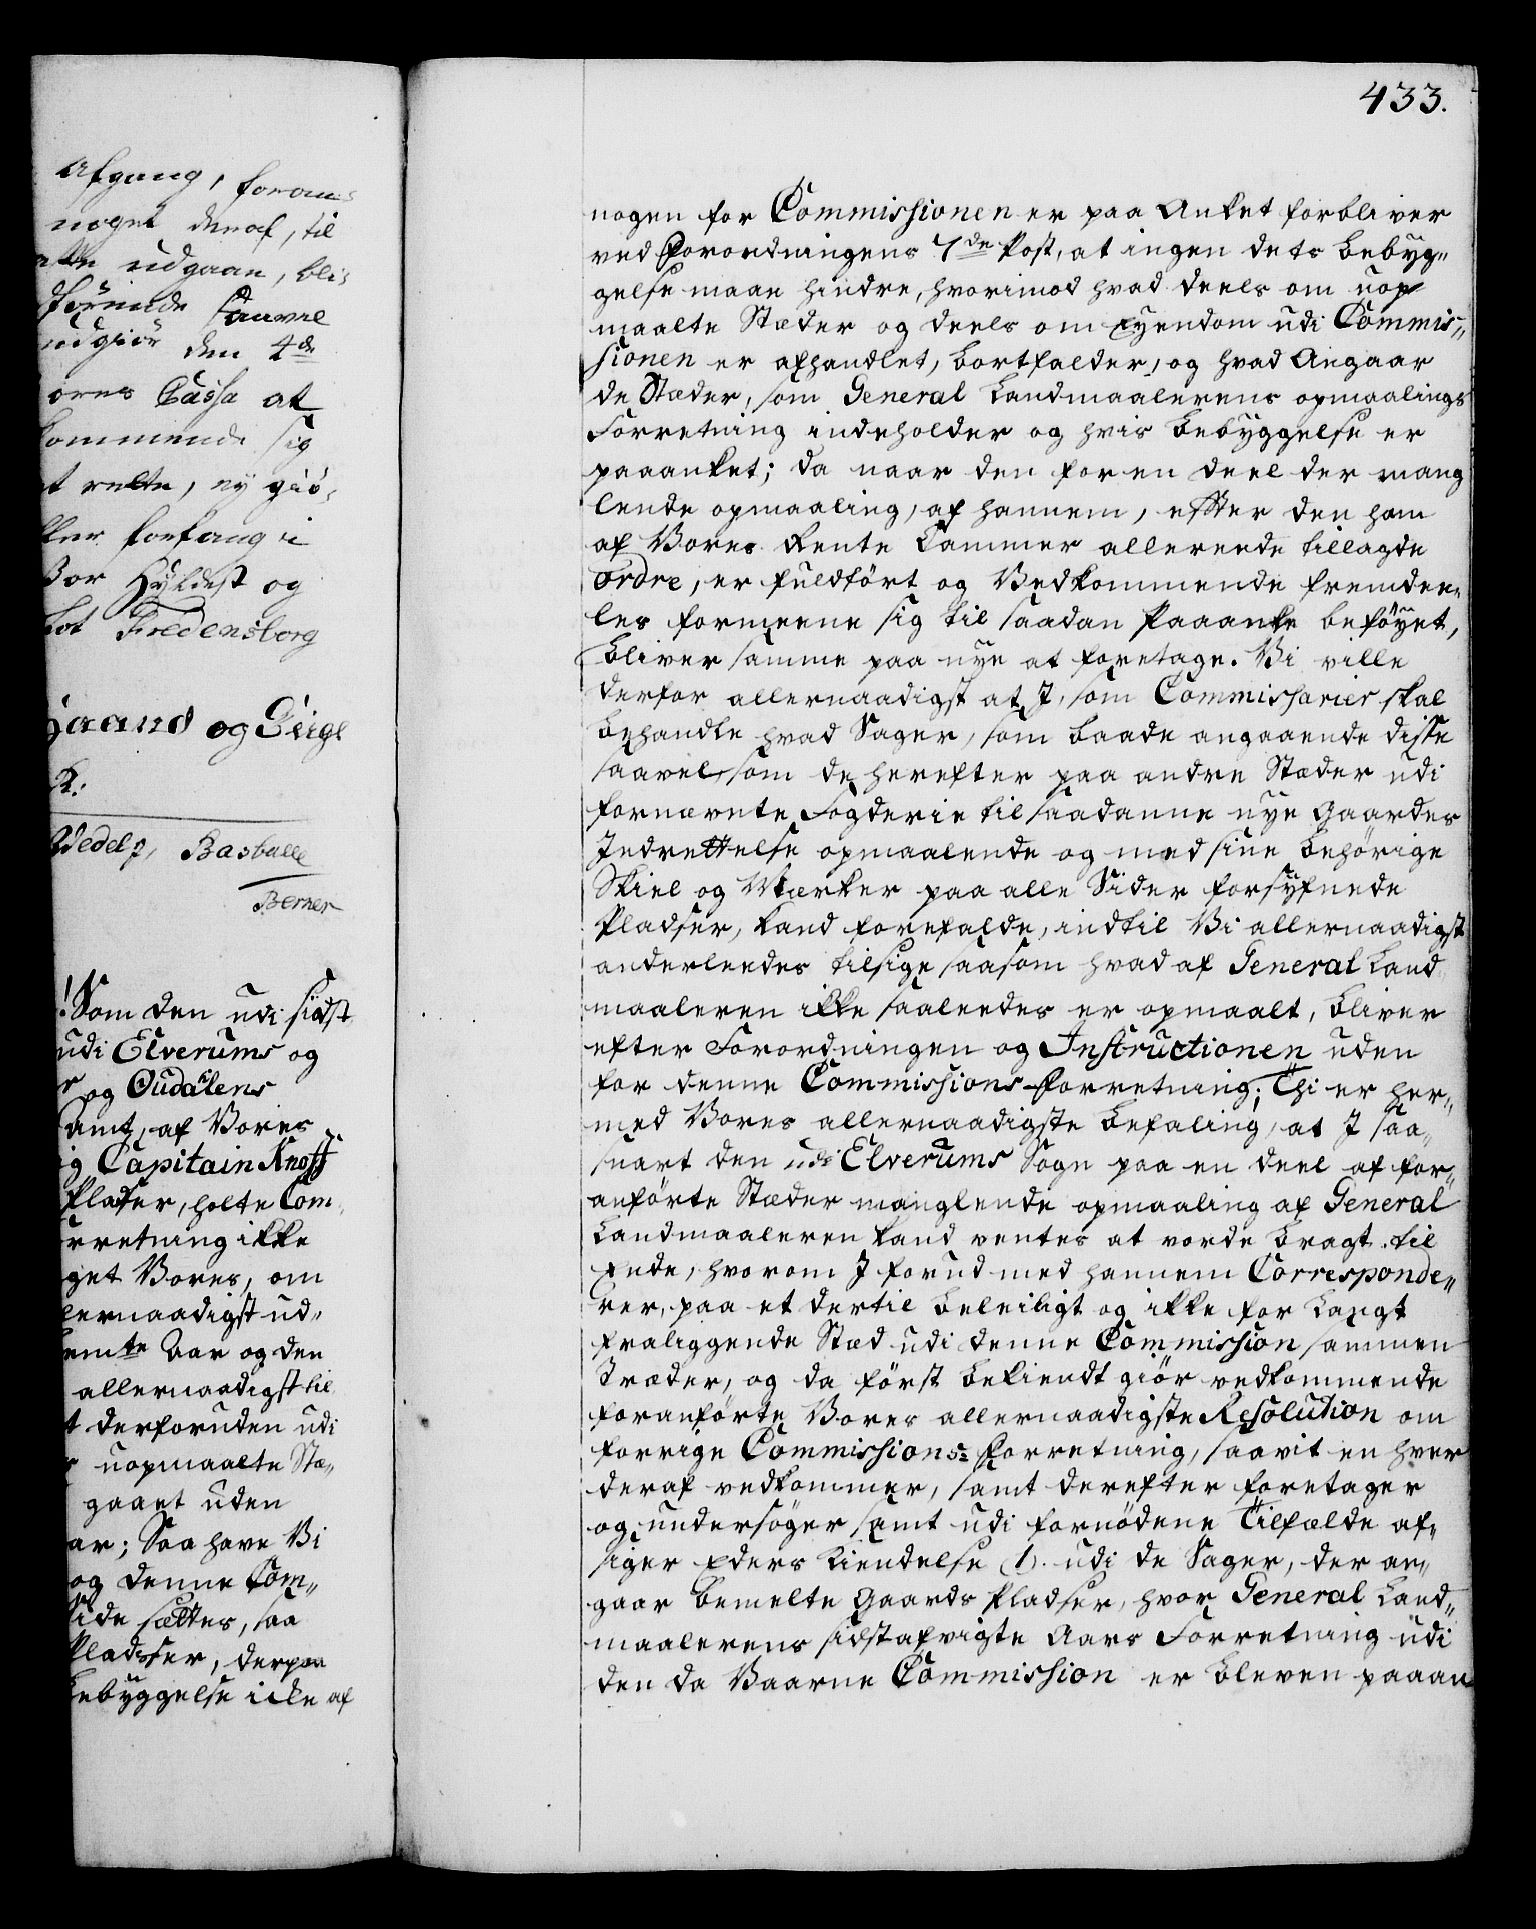 Afgang, foran-
noget deraf, til
udgaae, bli-
saavel
udgiör den 4de
ores Cassa at
kommende sig
t rette, ey giö-
forfang i
Vor Hyldest og
lot Fredensborg
Haand og Seigl
R:
Wedel, Basballe
Berner
Som den udi sidst
udi Elverums og
r og Oudalens
Amt, af Vores
ig Capitain Knoff
Pladser, holte Com-
rretning ikke
get Vores, om
lernaadigst ud-
emte Aar og den
allernaadigst til
t derforuden udi
r uopmaalte Stæ-
gaaet uden
ar; Saa have Vi
og denne Com-
side sættes, saa
Pladsser, derpaa
bebyggelse icke af
433.
nogen for Commissionen er paa Anket forbliver
ved Forordningens 7de Post, at ingen dets bebyg-
gelse maae hindre, hvorimod hvad deels om uop
maalte Stæder og deels om Eyendom udi Commis-
sionen er afhandlet, bortfalder, og hvad Angaar
de Stæder, som General Landmaalerens opmaalings
Forretning indeholder og hvis bebyggelse er
paaanket; da naar den for en deel der mang
lende opmaaling, af hannem, efter den ham
af Vores Rente Cammer allereede tillagde
Ordre, er fuldfört og Vedkommende fremdee-
les formeene sig til saadan Paaanke beföyet,
bliver samme paa nye at foretage. Vi ville
derfor allernaadigst at I, som Commissarier skal
behandle hvad Sager, som baade angaaende disse
saavel som de herefter paa andre Stæder udi
fornævnte Fogderie til saadanne nye Gaardes
Indrettelse opmaalende og med sine behörige
Skiel og Mærker paa alle Sider forsynede
Pladser, kand forefalde, indtil Vi allernaadigst
anderleedes tilsige saasom hvad af General Land
maaleren ikke saaleedes er opmaalt, bliver
efter Forordningen og Instructionen uden
for denne Commissions Forretning; Thi er her-
med Vores allernaadigste befaling, at I saa-
snart den udi Elverums Sogn paa en deel af for-
anförte Stæder manglende opmaaling af General
Landmaaleren kand ventes at vorde bragt til
Ende, hvorom I forud med hannem Corresponde-
rer, paa et dertil beleiligt og ikke for langt
fraliggende Stæd udi denne Commission sammen
træder, og da först bekiendt giör vedkommende
foranförte Vores allernaadigste Resolution om
forrige Commissions Forretning, saavit en hver
deraf vedkommer, samt derefter foretager
og undersöger samt udi fornödene Tilfælde af-
siger Eders Kiendelse 1. udi de Sager, der an-
gaar bemelte Gaards Pladser, hvor General Land-
maalerens sidstafvigte Aars Forretning udi
den da Vaarne Commission er bleven paaan